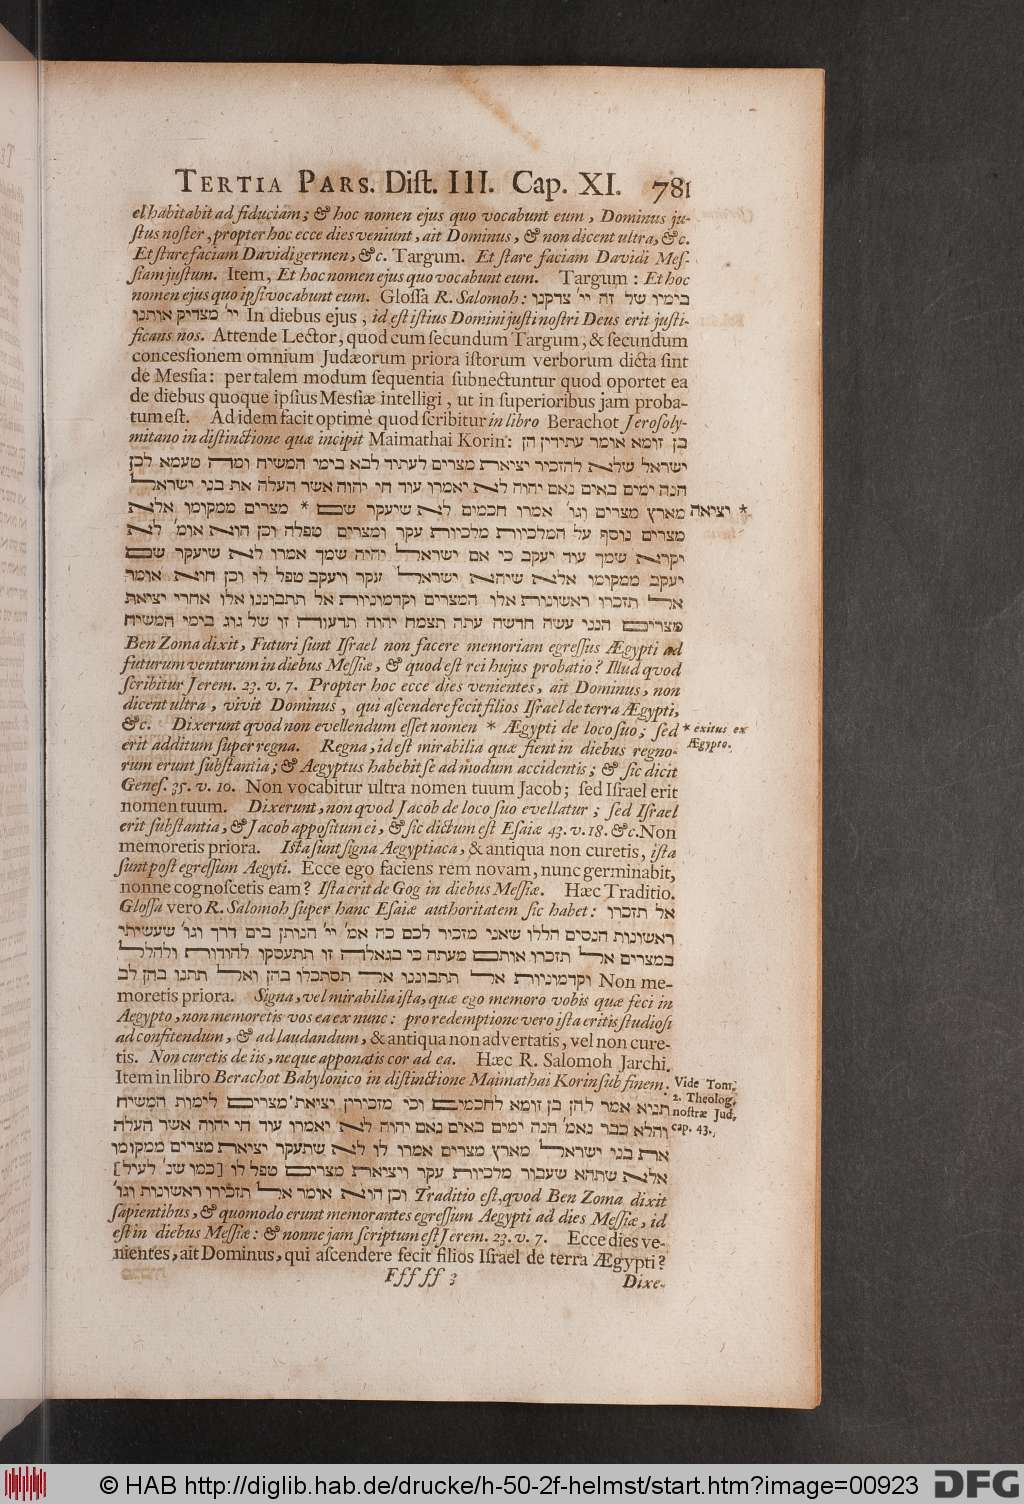 TERTIA PARS. Dist. III. Cap. XI. 781
el habitabit ad fiduciam; & hoc nomen ejus quo vocabunt eum, Dominus ju-
stus noster, propter hoc ecce dies veniunt, ait Dominus, & non dicent ultra, &c.
Et stare faciam Davidi germen, &c. Targum. Et stare faciam Davidi Mes-
siam justum. Item, Et hoc nomen ejus quo vocabunt eum. Targum: Et hoc
nomen ejus quo ipsi vocabunt eum. Glossa R. Salomoh: בימיו של זה יי׳ צדקנו
יי׳ מצדיק אותנו In diebus ejus, id est istius Domini justi nostri Deus erit justi-
ficans nos. Attende Lector, quod cum secundum Targum, & secundum
concessionem omnium Judæorum priora istorum verborum dicta sint
de Messia: per talem modum sequentia subnectuntur quod oportet ea
de diebus quoque ipsius Messiæ intelligi, ut in superioribus jam proba-
tum est. Ad idem facit optimè quod scribitur in libro Berachot Jerosoly-
mitano in distinctione quæ incipit Maimathai Korin: בן זומא אומר עתידין הן
ישראל שלא להזכיר יציאת מצרים לעתיד לבא בימי המשיח ומה טעמא לכן
הנה ימים באים נאם יהוה לא יאמרו עוד חי יהוה אשר העלה את בני ישראל
מארץ מצרים וגו׳ אמרו חכמים לא שיעקר שם * מצרים ממקומו אלא * ויציאה
מצרים נוסף על המלכיות מלכיות עקר ומצרים טפלה וכן הוא אומ׳ לא
יקרא שמך עוד יעקב כי אם ישראל יהיה שמך אמרו לא שיעקר שם
יעקב ממקומו אלא שיהא ישראל עקר ויעקב טפל לו וכן הוא אומר
אל תזכרו ראשונות אלו המצרים וקדמוניות אל תתבוננו אלו אחרי יציאת
מצרים הנני עשה חדשה עתה תצמח יהוה תדעוה זו של גוג בימי המשיח
Ben Zoma dixit, Futuri sunt Israel non facere memoriam egressus Ægypti ad
futurum venturum in diebus Messiæ, & quod est rei hujus probatio? Illud qvod
scribitur Jerem. 23. v. 7. Propter hoc ecce dies venientes, ait Dominus, non
dicent ultra, vivit Dominus, qui ascendere fecit filios Israel de terra Ægypti,
&c. Dixerunt qvod non evellendum esset nomen * Ægypti de loco suo; sed * exitus ex
erit additum super regna. Regna, id est mirabilia quæ fient in diebus regno- Ægypto.
rum erunt substantia; & Aegyptus habebit se ad modum accidentis; & sic dicit
Genes. 35. v. 10. Non vocabitur ultra nomen tuum Jacob; sed Israel erit
nomen tuum. Dixerunt, non qvod Jacob de loco suo evellatur; sed Israel
erit substantia, & Jacob appositum ei, & sic dictum est Esaiæ 43. v. 18. &c. Non
memoretis priora. Ista sunt signa Aegyptiaca, & antiqua non curetis, ista
sunt post egressum Aegyti. Ecce ego faciens rem novam, nunc germinabit,
nonne cognoscetis eam? Ista erit de Gog in diebus Messiæ. Hæc Traditio.
Glossa vero R. Salomoh super hanc Esaiæ authoritatem sic habet: אל תזכרו
ראשונות הנסים הללו שאני מזכיר לכם כה אמ׳ יי׳ הנותן בים דרך וגו׳ שעשיתי
במצרים אל תזכרו אותם מעתה כי בגאלה זו תתעסקו להודות ולהלל
וקדמוניות אל תתבוננו אל תסתכלו בהן ואל תתנו בהן לב Non me-
moretis priora. Signa, vel mirabilia ista, quæ ego memoro vobis quæ feci in
Aegypto, non memoretis vos ea ex nunc: pro redemptione vero ista eritis studiosi
ad confitendum, & ad laudandum, & antiqua non advertatis, vel non cure-
tis. Non curetis de iis, neque apponatis cor ad ea. Hæc R. Salomoh Jarchi.
Item in libro Berachot Babylonico in distinctione Maimathai Korin sub finem. Vide Tom.
תניא אמר להן בן זומא לחכמים וכי מזכירין יציאת מצרים לימות המשיח 2. Theolog.
והלא כבר נאמ׳ הנה ימים באים נאם יהוה לא יאמרו עוד חי יהוה אשר העלה nostræ Jud.
את בני ישראל מארץ מצרים אמרו לו לא שתעקר יציאת מצרים ממקומו cap. 43.
אלא שתהא שעבור מלכיות עקר ויציאת מצרים טפל לו [כמו שנ׳ לעיל]
וכן הוא אומר אל תזכירו ראשונות וגו׳ Traditio est, qvod Ben Zoma dixit
sapientibus, & quomodo erunt memorantes egressum Aegypti ad dies Messiæ, id
est in diebus Messiæ: & nonne jam scriptum est Jerem. 23. v. 7. Ecce dies ve-
nientes, ait Dominus, qui ascendere fecit filios Israel de terra Ægypti?
Fffff 3 Dixe-
© HAB http://diglib.hab.de/drucke/h-50-2f-helmst/start.htm?image=00923 DFG